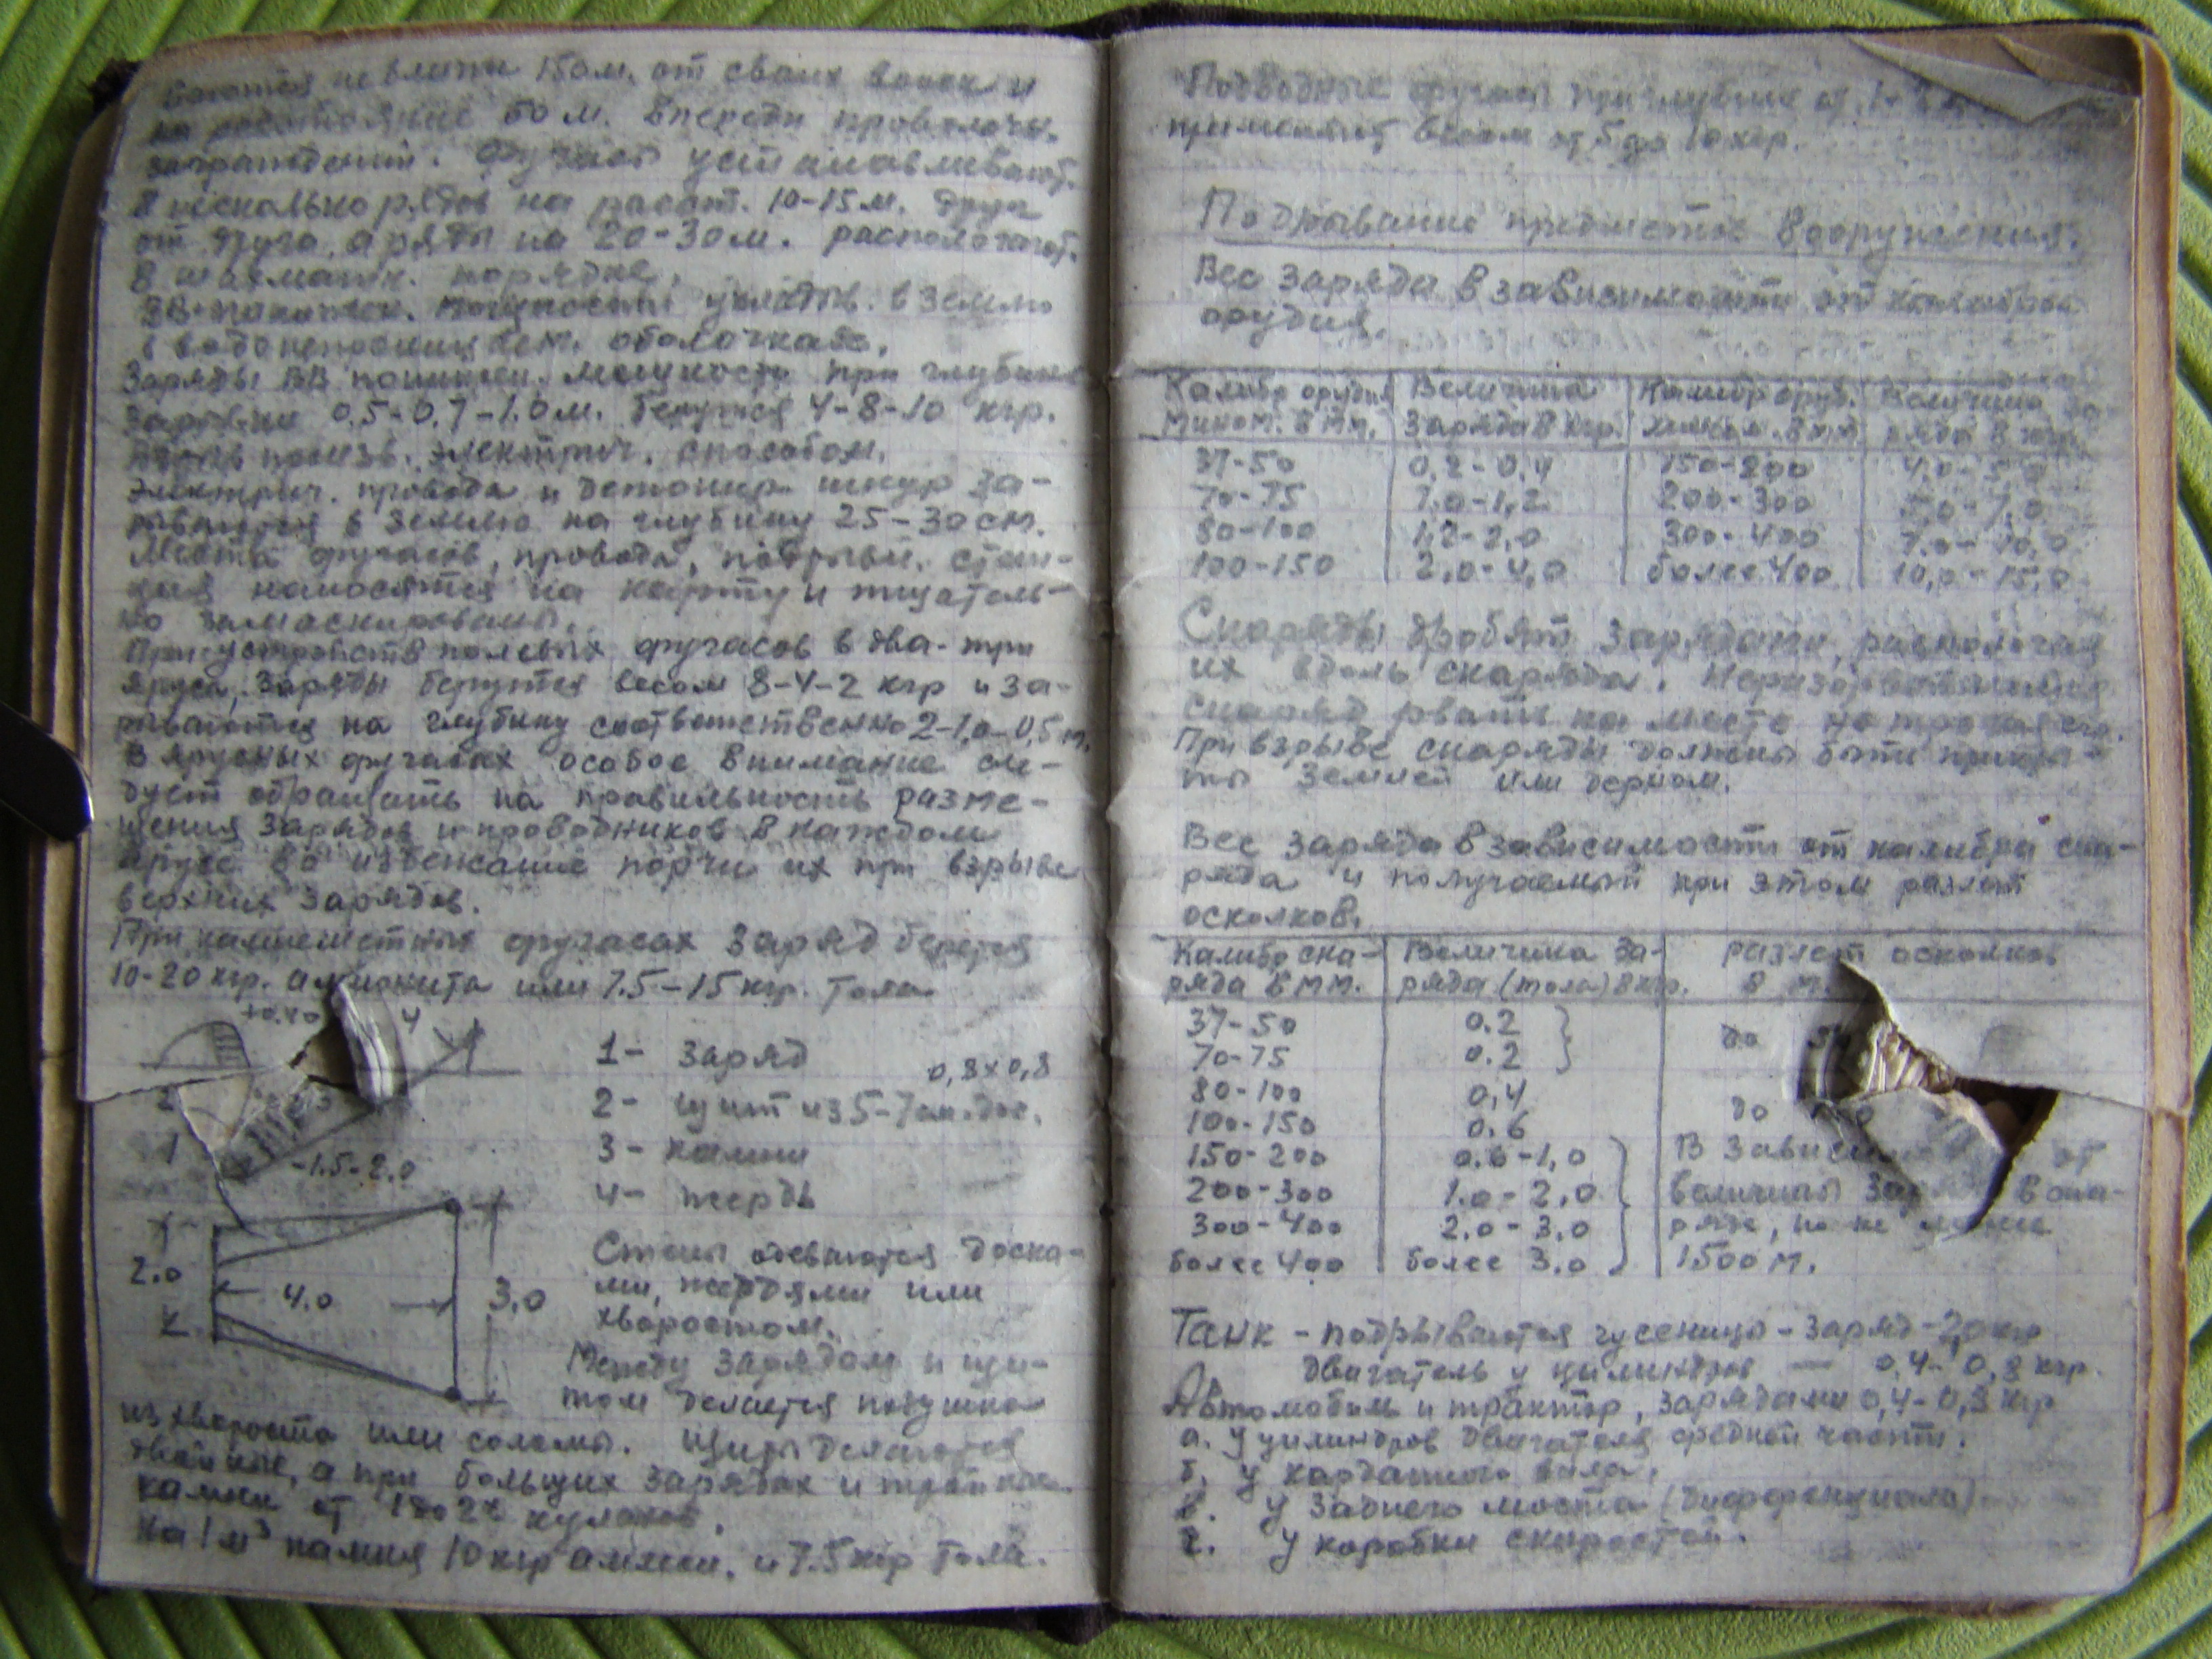 ваются не ближе 150 м. от своих войск и
на расстояние 50 м. впереди проволочн.
заграждений. Фугасы устанавливают.
в несколько рядов на расст. 10-15 м. друг
от друга, а ряды на 20-30 м. располагают.
в шахматн. порядке.
ВВ мощности укладыв. в землю
в водонепроницаем. оболочках.
Заряды ВВ мощности при глубине
зарывки 0,5-0,7-1.0 м. берутся 4-8-10 кгр.
Взрыв произв. электрич. способом.
Электрич. провода и детонир. шнур за-
рываются в землю на глубину 25-30 см.
Места фугасов, провода, подрывн. стан-
ция наносятся на карту и тщатель-
но замаскированы.
При устройств полевых фугасов в два-три
яруса, заряды берутся весом 8-4-2 кгр и за-
рываются на глубину соответственно 2-1,0-0,5 м.
В ярусных фугасах особое внимание сле-
дует обращать на правильность разме-
щения зарядов и проводников в каждом
ярусе во избежание порчи их при взрыве
верхних зарядов.
При камнеметных фугасах заряд берется
10-20 кгр. аммонита или 7.5-15 кгр. тола
+0.40 4
2 3
1 -1.5-2.0
1- заряд
0,8х0,8
2- щит из 5-7 см. дос.
3- камни
4- жердь
2.0 4.0 3,0
Стены одеваются доска-
ми, жердями или
хворостом.
Между зарядом и щи-
том делается подушка
из хвороста или соломы. Щиты делаются
двойные, а при больших зарядах и тройные
камни от 1 до 2х кулаков.
На 1 м³ камня 10 кгр аммон. и 7.5 кгр тола.
Подводные фугасы при глубине от 1-
применяют весом от 5 до 10 кгр.
Подрывание предметов вооружения.
Вес заряда в зависимости от калибра
орудия.
Калибр орудия Величина Калибр оруд. Величина за-
мином. в мм. заряда в кгр. в мм ряда в кгр.
37-50 0,2-0,4 150-200 4,0-5,0
70-75 1,0-1,2 200-300 5,0-7,0
80-100 1,2-2,0 300-400 7.0-10,0
100-150 2,0-4,0 более 400 10,0-15,0
Снаряды дробят зарядами, располагая
их вдоль снаряда. Неразорвавшийся
снаряд рвать на месте не трогая его.
При взрыве снаряды должны быть прикры-
ты землей или дерном.
Вес заряда в зависимости от калибра сна-
ряда и получаемый при этом разлет
осколков.
Калибр сна- Величина за- разлет осколков
ряда в мм. ряда (тола) в кгр. в м.
37-50 0.2 до
70-75 0.2
80-100 0,4
100-150 0.6 до
150-200 0.6-1,0 В зависим от
200-300 1.0-2,0 величины заряда в сна-
300-400 2.0-3.0 ряде, но не
более 400 более 3.0 1500 м.
Танк - подрываются гусеницы - заряд - 2,0 кгр
двигатель у цилиндров — 0,4-0,8 кгр.
Автомобиль и трактор, зарядами 0,4-0,8 кгр
а. у цилиндров двигателя средней части.
б. у карданного вала.
в. у заднего моста (дифференциала)
г. у коробки скоростей.